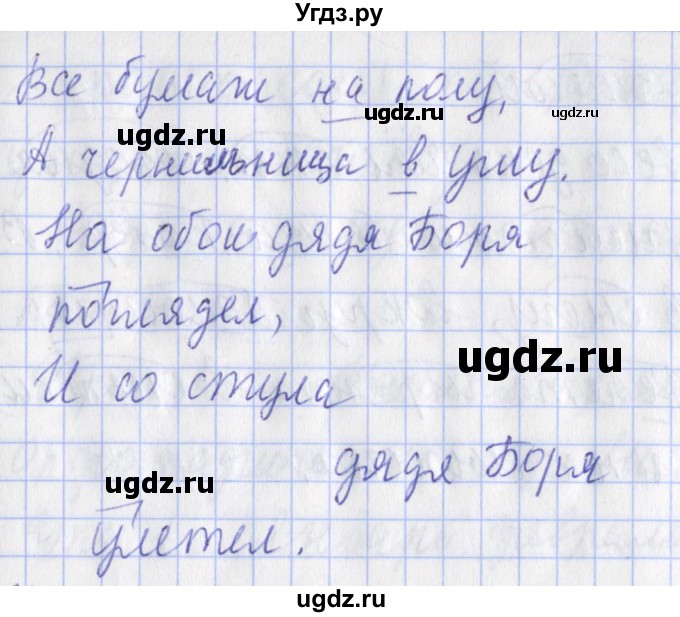 Угдз.ру
Все бумаж на полу,
ugdz.ru
ugdz.ru
А чернильница в углу.
На обои дядя Боря
поглядел,
ugdz.ru
И со стула
дядя Боря
ugdz.ru
Улетел.
ugdz.ru